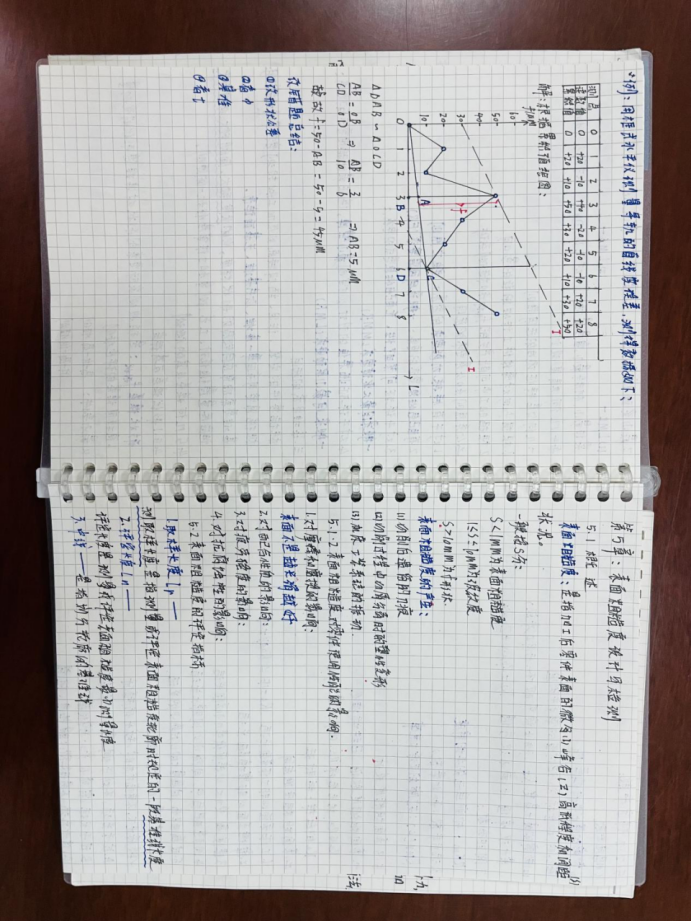 例：用框式水平仪测量导轨的直线度误差，测得数据如下：
测点 0 1 2 3 4 5 6 7 8
读数值 0 +20 -10 +40 -20 -10 -10 +20 +20
累积值 0 +20 +10 +50 +30 +20 +10 +30 +50
解：根据累积值作图：
f/μm
50
40
30
20
10
0 1 2 3 4 5 6 7 8 L
A B C D f I I
△OAB ∽ △OCD
AB/CD = OB/OD ⇒ AB/10 = 3/6 ⇒ AB=5μm
故 f=50-AB=50-5=45μm
第5章：表面粗糙度设计与检测
5.1 概述
表面粗糙度：是指加工后零件表面的微小峰谷(Z)高低程度和间距(S)
状况。
一般按S分：
S<1mm为表面粗糙度
1≤S≤10mm为波纹度
S>10mm为形状
表面粗糙度的产生：
(1)切削后遗留的刀痕
(2)切削过程中切屑分离时的塑性变形
(3)机床工艺系统的振动
5.1.2 表面粗糙度对零件使用性能的影响.
1.对摩擦和磨损的影响：
表面不是越光滑越好
2.对配合性质的影响：
3.对疲劳强度的影响：
4.对抗腐蚀性的影响：
5.2 表面粗糙度的评定指标：
1.取样长度 lr——
测取样长度是指测量或评定表面粗糙度轮廓时规定的一段基准线长度
2.评定长度 ln——
评定长度是测量或评定表面粗糙度最小测量长度
3.中线——是指划分轮廓的基准线